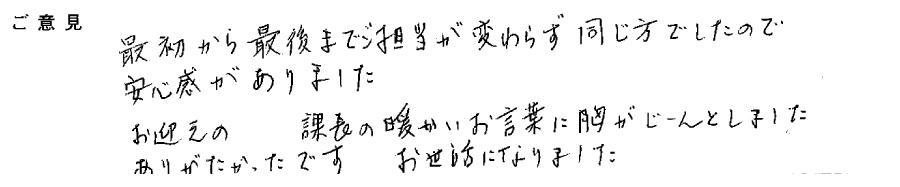 ご意見
最初から最後までご担当が変わらず同じ方でしたので
安心感がありました
お迎えの 課長の暖かいお言葉に胸がじーんとしました
ありがたかったです お世話になりました